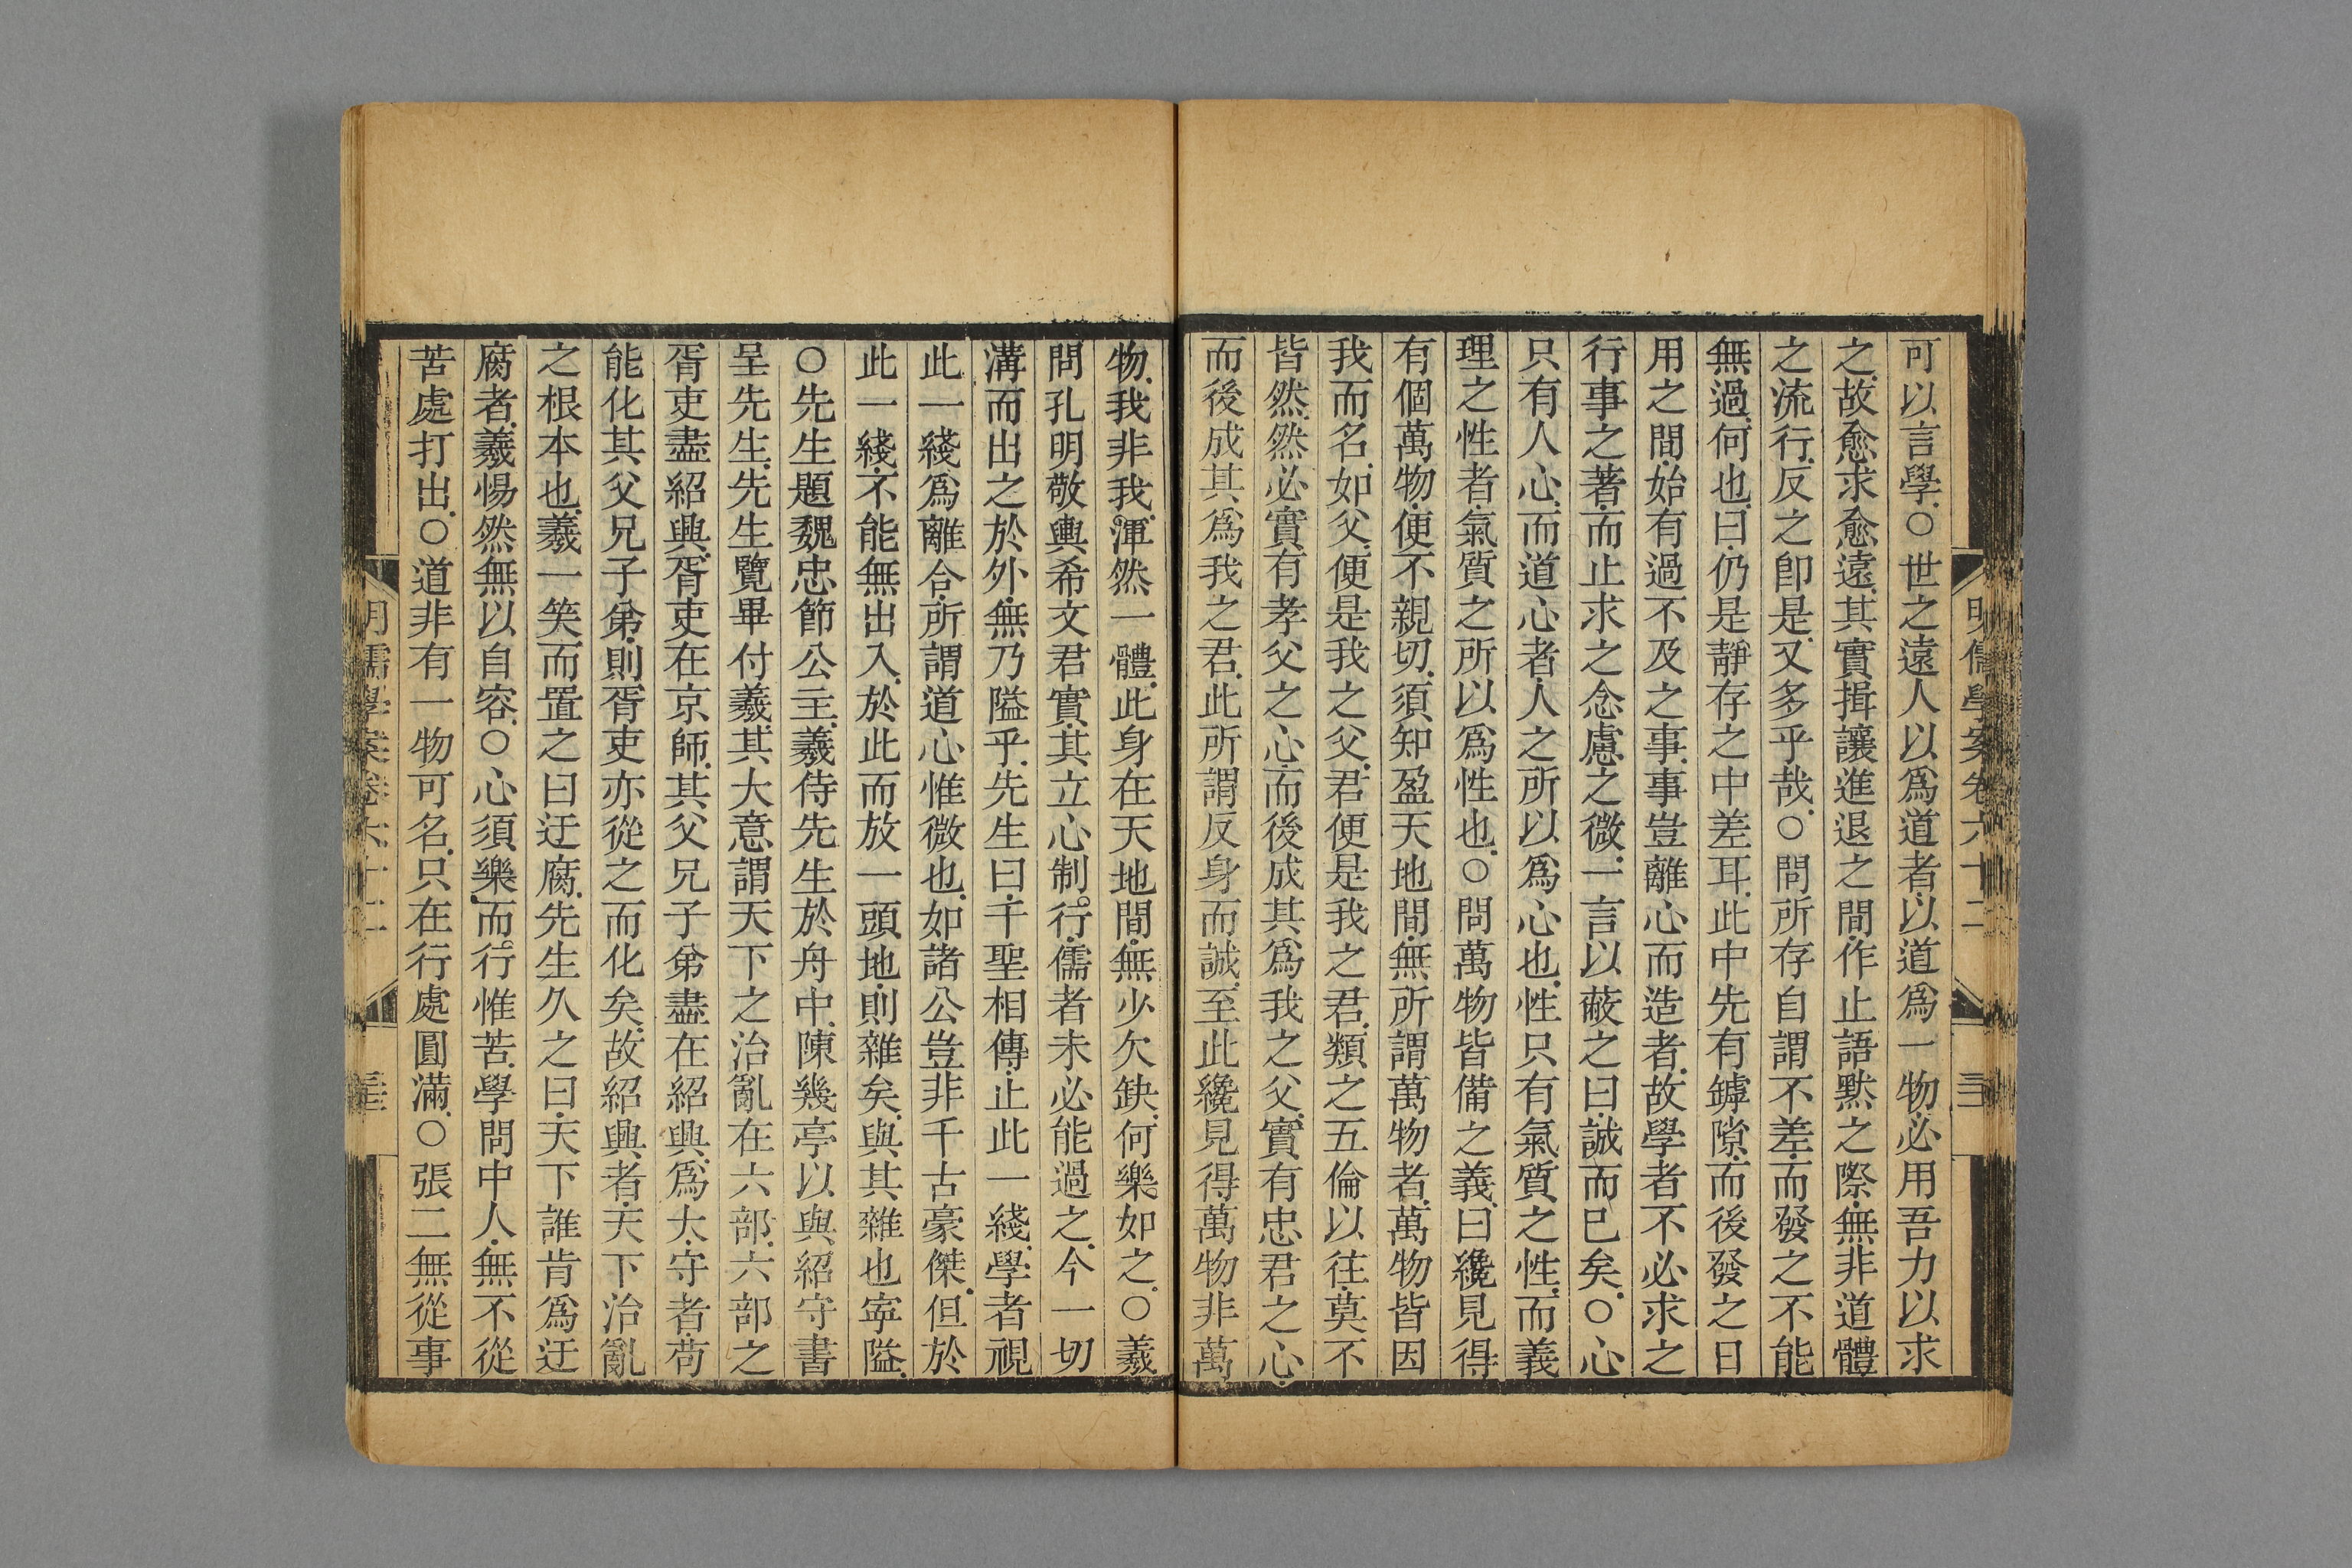 明儒學案卷六十二
可以言學○世之遠人以爲道者以道爲一物必用吾力以求
之故愈求愈遠其實揖讓進退之間作止語默之際無非道體
之流行反之卽是又多乎哉○問所存自謂不差而發之不能
無過何也曰仍是靜存之中差耳此中先有罅隙而後發之日
用之間始有過不及之事事豈離心而造者故學者不必求之
行事之著而止求之念慮之微一言以蔽之曰誠而已矣○心
只有人心而道心者人之所以爲心也性只有氣質之性而義
理之性者氣質之所以爲性也○問萬物皆備之義曰纔見得
有個萬物便不親切須知盈天地間無所謂萬物者萬物皆因
我而名如父便是我之父君便是我之君類之五倫以往莫不
皆然然必實有孝父之心而後成其爲我之父實有忠君之心
而後成其爲我之君此所謂反身而誠至此纔見得萬物非萬
物我非我渾然一體此身在天地間無少欠缺何樂如之○羲
問孔明敬輿希文君實其立心制行儒者未必能過之今一切
溝而出之於外無乃隘乎先生曰千聖相傳止此一綫學者視
此一綫爲離合所謂道心惟微也如諸公豈非千古豪傑但於
此一綫不能無出入於此而放一頭地則雜矣與其雜也寜隘
○先生題魏忠節公主羲侍先生於舟中陳幾亭以與紹守書
呈先生先生覽畢付羲其大意謂天下之治亂在六部六部之
胥吏盡紹興胥吏在京師其父兄子弟盡在紹興爲太守者苟
能化其父兄子弟則胥吏亦從之而化矣故紹興者天下治亂
之根本也羲一笑而置之曰迂腐先生久之曰天下誰肯爲迂
腐者羲惕然無以自容○心須樂而行惟苦學問中人無不從
苦處打出○道非有一物可名只在行處圓滿○張二無從事
明儒學案卷六十二